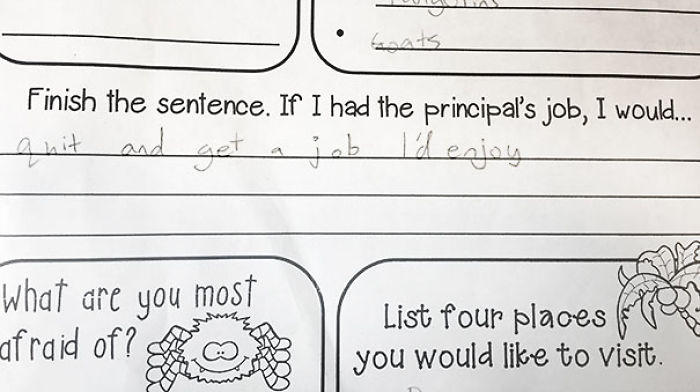 • Goats
Finish the sentence. If I had the principal's job, I would...
quit and get a job I'd enjoy
What are you most
afraid of?
List four places
you would like to visit.